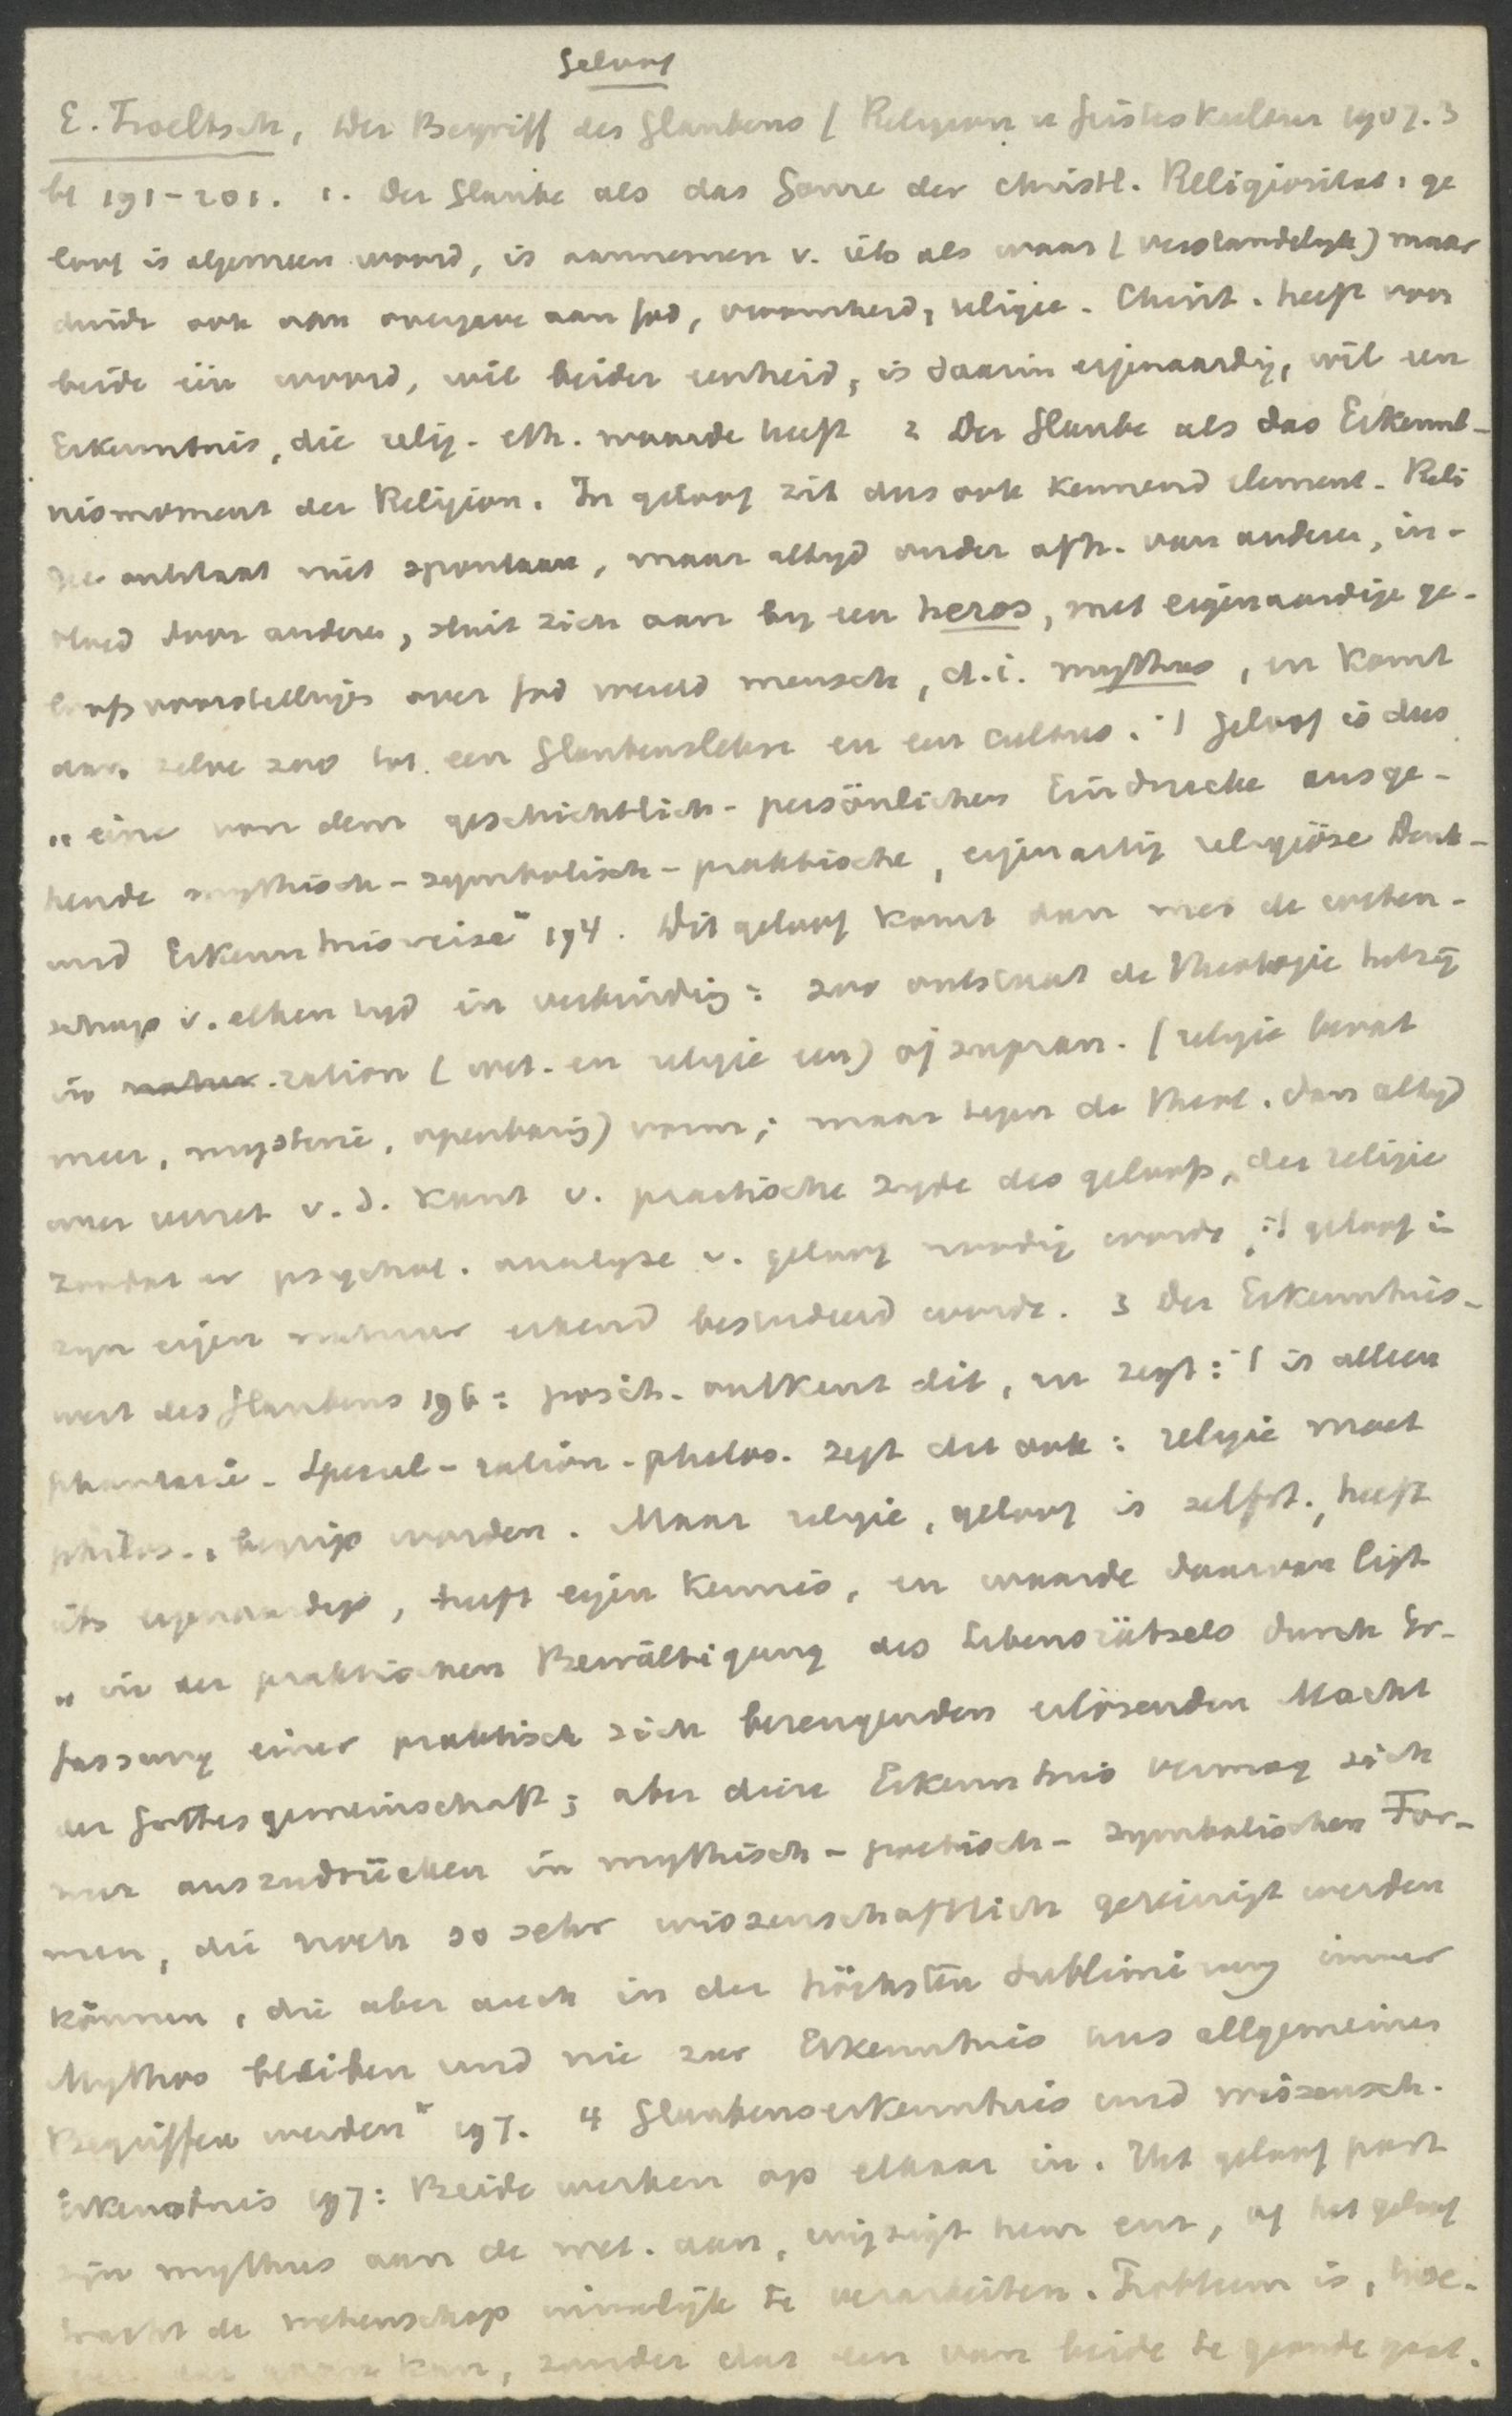 Geloof
E. Troeltsch, Der Begriff des Glaubens (Religion u Geisteskultur 1907. 3
bl 191-201. 1. Der Glaube als das Ganze der christl. Religiosität, ge
loof is algemeen woord, is aannemen v. iets als waar (verstandelijk) maar
duidt ook aan overgave aan God, vroomheid, religie. Christ. heeft voor
beide één woord, wil beider eenheid, is daarin eigenaardig, wil een
Erkenntnis, die relig. eth. waarde heeft 2 Der Glaube als das Erkennt-
nismoment der Religion. In geloof zit dus ook kennend element. Reli
gie ontstaat niet spontaan, maar altijd onder afh. van anderen, in-
vloed door anderen, sluit zich aan bij een heros, met eigenaardige ge-
loofsvoorstellings over God wereld mensch, d.i. mythus, en komt
van zelve zoo tot een Glaubenslehre en een cultus. :| Geloof is dus
„eine von dem geschichtlich-persönlichen Eindrucke ausge-
hende mythisch-symbolisch-praktische, eigenartig religiöse Denk-
und Erkenntnisweise" 194. Dit geloof komt dan met de weten-
schap v. elken tijd in verbinding: zoo ontstaat de theologie hetzij
in natur. ration (wet. en religie een) of supran. (religie bevat
meer, mysterie, openbaring) vorm; maar tegen de theol. dan altijd
weer verzet v.d. kant v. practische zijde des geloofs, der religie
zoodat er psychol. analyse v. geloof noodig worde, :| geloof in
zijn eigen natuur erkend bestudeerd worde. 3 Der Erkenntnis-
wert des Glaubens 196: posit. ontkent dit, en zegt: :| is alleen
phantasie. Specul-ration-philos. zegt dit ook: religie moet
philos., begrip worden. Maar religie, geloof is zelfst., heeft
iets eigenaardigs, heeft eigen kennis, en waarde daarvan ligt
„in der praktischen Bewältigung des Lebensrätsels durch Er-
fassung einer praktisch sich bezeugenden erlösenden Macht
der Gottesgemeinschaft; aber diese Erkenntnis vermag sich
nur auszudrücken in mythisch-poetisch-symbolischen For-
men, die noch so sehr wissenschaftlich gereinigt werden
können, die aber auch in der höchsten Sublimierung immer
Mythos bleiben und nie zur Erkenntnis aus allgemeinen
Begriffen werden" 197. 4 Glaubenserkenntnis und wissensch.
Erkenntnis 197: Beide werken op elkaar in. Het geloof past
zijn mythus aan de wet. aan, wijzigt hem enz, of het geloof
tracht de wetenschap innerlijk te verarbeiten. Probleem is, hoe
dat kan, zonder dat een van beide te gronde gaat.